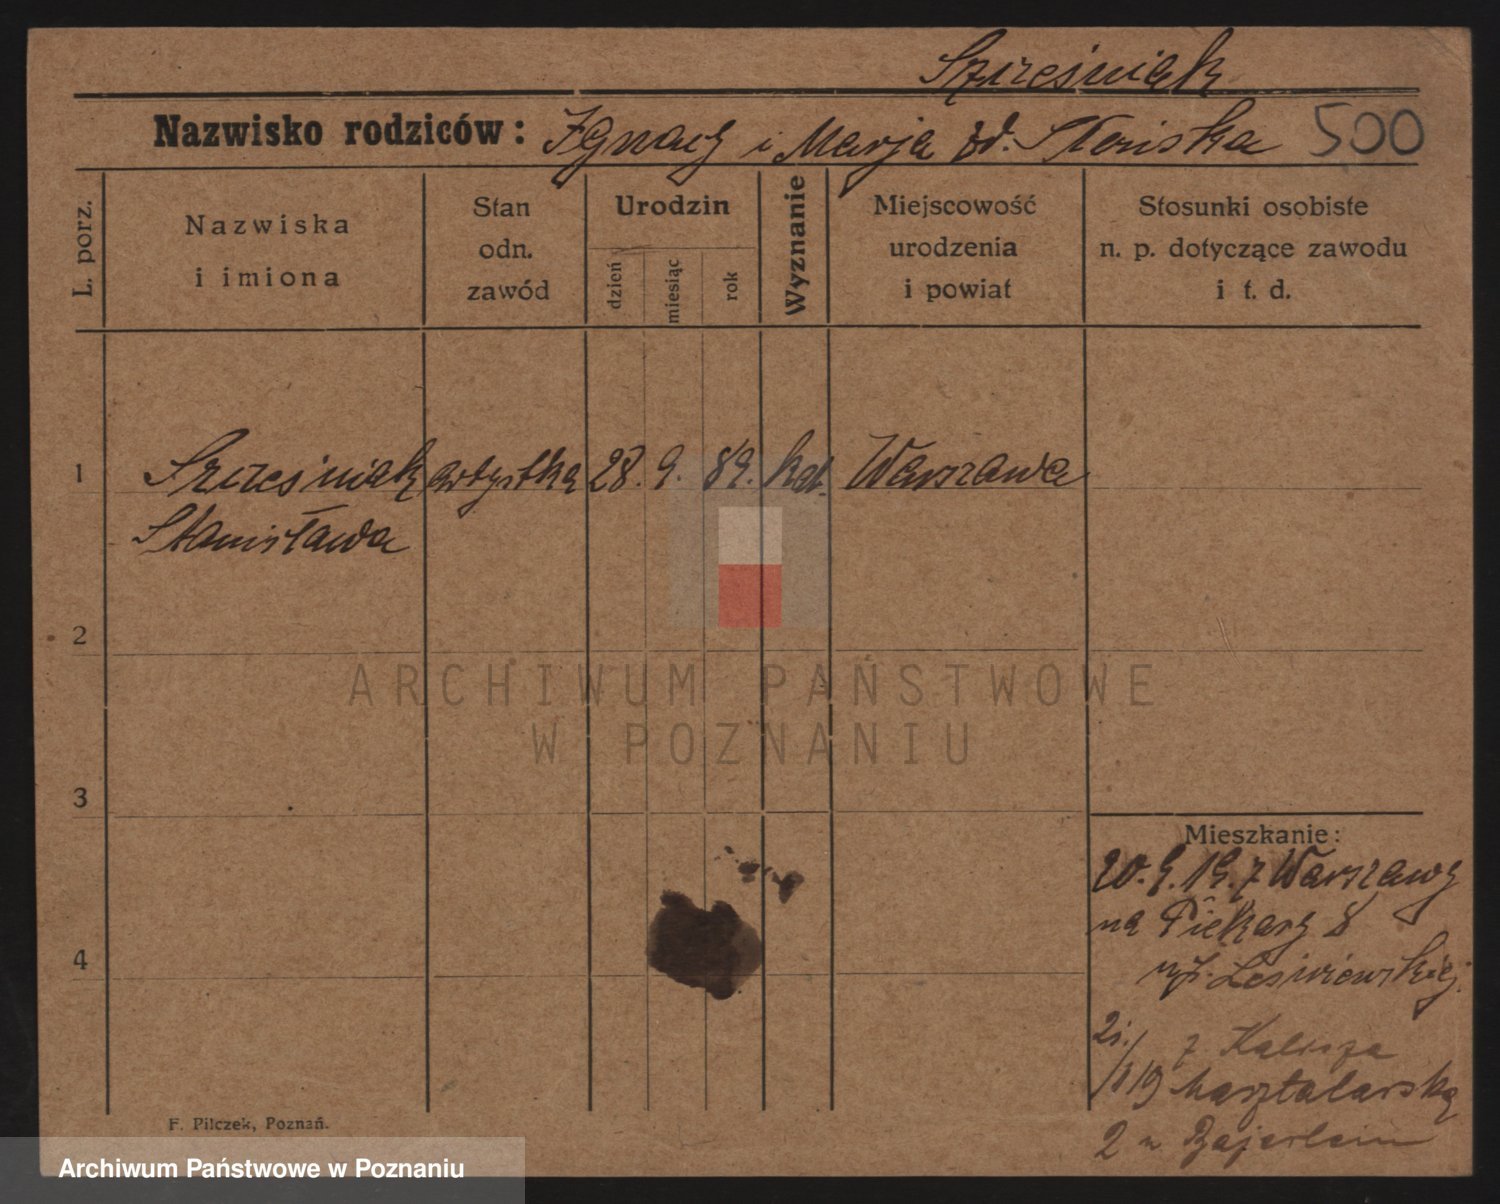 Szcześniak
Nazwisko rodziców: Ignacy i Marja zd. Słońska 500
L. porz.
Nazwiska
i imiona
Stan
odn.
zawód
Urodzin
dzień
miesiąc
rok
Wyznanie
Miejscowość
urodzenia
i powiat
Stosunki osobiste
n. p. dotyczące zawodu
i t. d.
1 Szcześniak artystka 28. 9. 89. kat. Warszawa
Stanisława
2
3
4
Mieszkanie:
20. 9. 19. z Warszawy
na Piekary 8
Leśniewskiej.
z Kalisza
19 Masztalarską
2
F. Pilczek, Poznań.
ARCHIWUM PAŃSTWOWE
W POZNANIU
Archiwum Państwowe w Poznaniu